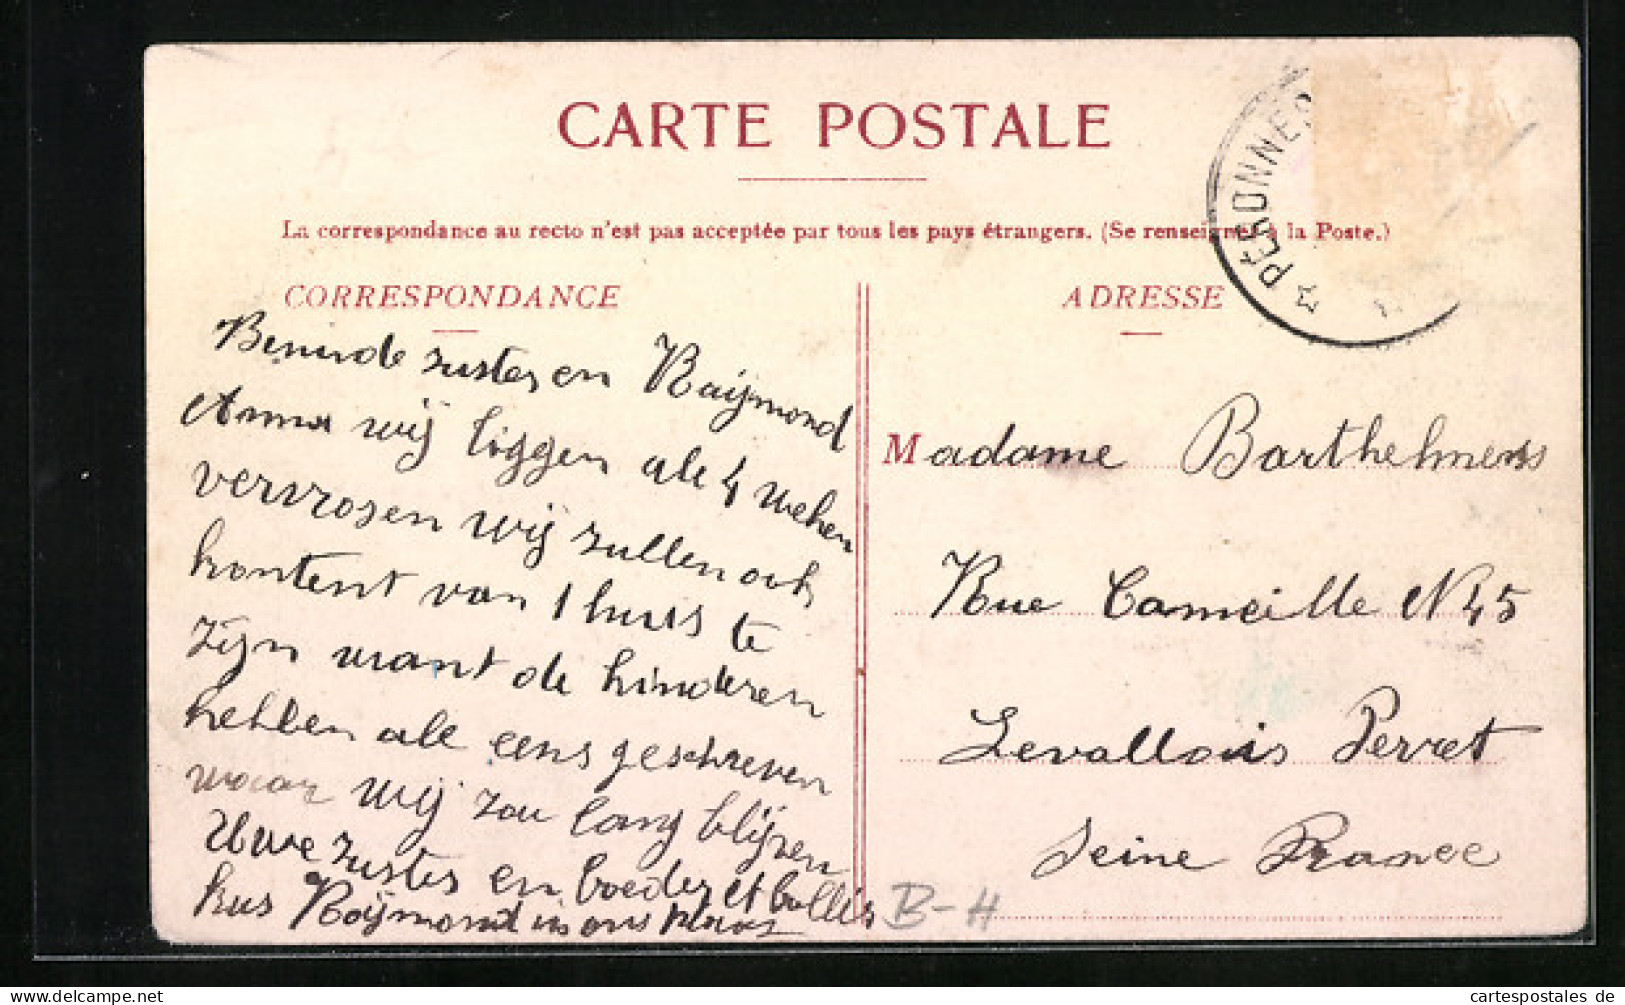 CARTE POSTALE
La correspondance au recto n'est pas acceptée par tous les pays étrangers. (Se renseigner à la Poste.)
PÉRONNES
CORRESPONDANCE
ADRESSE
Beminde zuster en Raijmond
Anna wij liggen ale 4 weken
vervrosen wij zullen ook
kontent van 1 huis te
zijn want de kinderen
hebben ale eens geschreven
waar wij zou lang blijven
Uwe zuster en boeder et
kus Raijmond in ons
Madame Barthelmens
Rue Cameille N 45
Levallois Perret
Seine France
B-H
cartespostales de